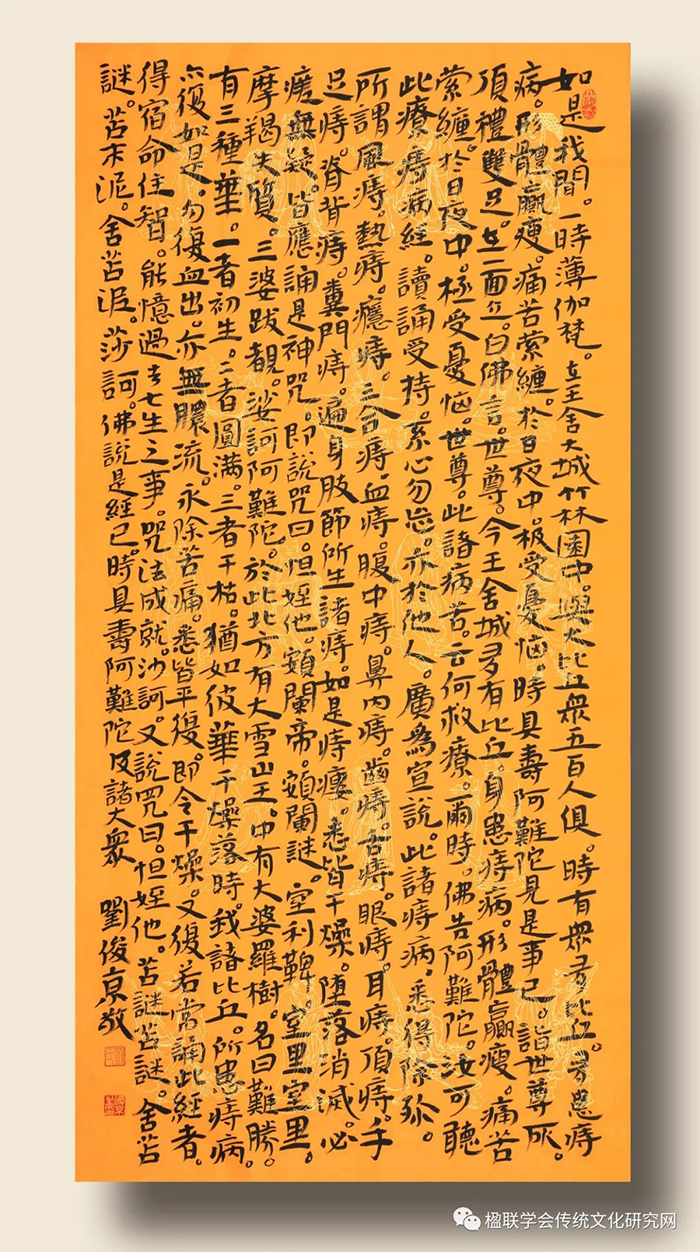 如是我聞。一時薄伽梵。在王舍大城竹林園中。與大比丘衆五百人俱。時有衆多比丘。多患痔
病。形體羸瘦。痛苦縈纏。於日夜中。极受憂惱。時具壽阿難陀見是事已。詣世尊所。
頂禮雙足。在一面立。白佛言。世尊。今王舍城多有比丘。身患痔病。形體羸瘦。痛苦
縈纏。於日夜中。極受憂惱。世尊。此諸病苦。云何救療。爾時。佛告阿難陀。汝可聽
此療痔病經。讀誦受持。系心勿忘。亦於他人。廣爲宣說。此諸痔病。悉得除殄。
所謂風痔。熱痔。癊痔。三合痔。血痔。腹中痔。鼻内痔。齒痔。舌痔。眼痔。耳痔。頂痔。手
足痔。脊背痔。糞門痔。遍身肢節所生諸痔。如是痔瘻。悉皆干燥。墮落消滅。必
瘥無疑。皆應誦是神咒。即說咒曰。怛姪他。頞闌帝。頞闌謎。室利鞞。室里室里。
摩羯失質。三婆跋覩。娑訶阿難陀。於此北方有大雪山王。中有大婆羅樹。名曰難勝。
有三種華。一者初生。二者圓满。三者干枯。猶如彼華干燥落時。我諸比丘。所患痔病。
亦復如是。勿復血出。亦無膿流。永除苦痛。悉皆平復。即令干燥。又復若常誦此經者。
得宿命住智。能憶過去七生之事。咒法成就。沙訶。又說咒曰。怛姪他。苫謎苫謎。舍苫
謎。苫末泥。舍苫泥。莎訶。佛說是經已。時具壽阿難陀及諸大衆 劉俊京敬
楹联学会传统文化研究网